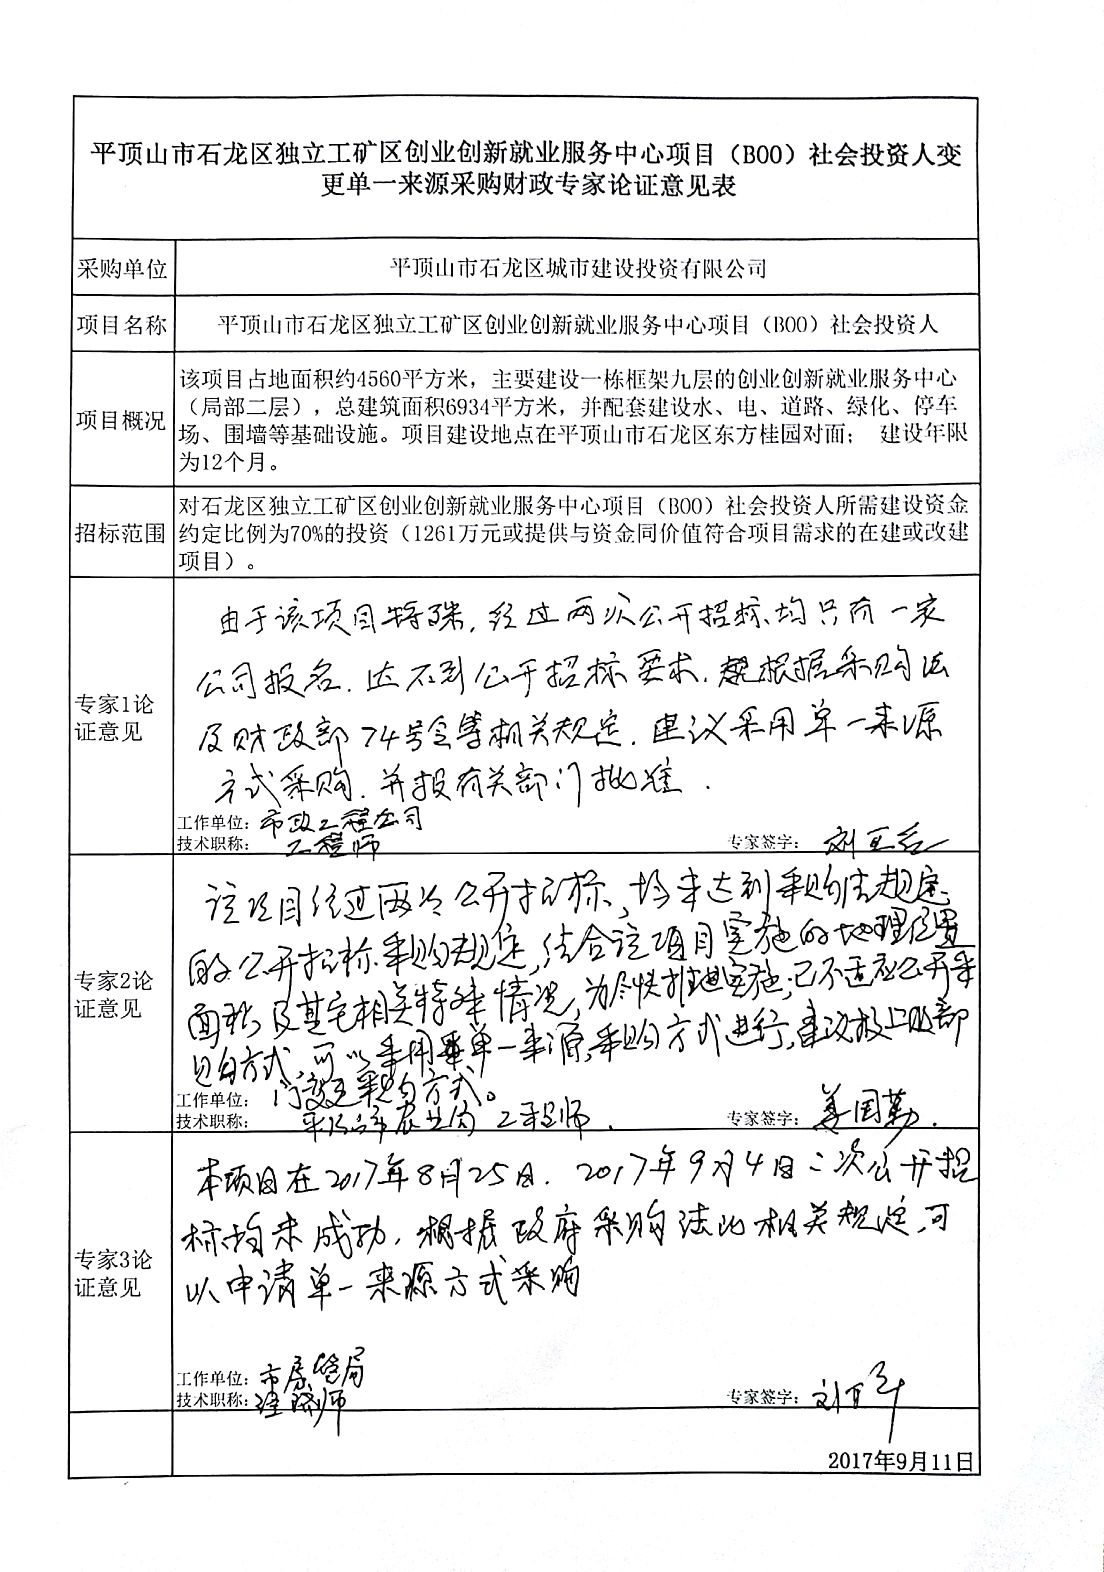 平顶山市石龙区独立工矿区创业创新就业服务中心项目（BOO）社会投资人变
更单一来源采购财政专家论证意见表
采购单位
平顶山市石龙区城市建设投资有限公司
项目名称
平顶山市石龙区独立工矿区创业创新就业服务中心项目（BOO）社会投资人
项目概况
该项目占地面积约4560平方米，主要建设一栋框架九层的创业创新就业服务中心
（局部二层），总建筑面积6934平方米，并配套建设水、电、道路、绿化、停车
场、围墙等基础设施。项目建设地点在平顶山市石龙区东方桂园对面； 建设年限
为12个月。
招标范围
对石龙区独立工矿区创业创新就业服务中心项目（BOO）社会投资人所需建设资金
约定比例为70%的投资（1261万元或提供与资金同价值符合项目需求的在建或改建
项目）。
专家1论
证意见
由于该项目特殊，经过两次公开招标均只有一家
公司报名，达不到公开招标要求，根据采购法
及财政部74号令等相关规定，建议采用单一来源
方式采购，并报有关部门批准．
工作单位：市政工程公司
技术职称：工程师
专家签字：刘
专家2论
证意见
该项目经过两次公开招标，均未达到采购法规定
的公开招标采购规定，结合该项目实施的地理位置
面积及其它相关特殊情况，为尽快推进实施，已不适应公开采
购方式，可以采用单一来源采购方式进行，建议报上财部
门变更采购方式。
工作单位：
技术职称：平顶山市农业局 工程师．
专家签字：姜国勤．
专家3论
证意见
本项目在2017年8月25日．2017年9月4日二次公开招
标均未成功，根据政府采购法比相关规定，可
以申请单一来源方式采购
工作单位：市房管局
技术职称：经济师
专家签字：刘
2017年9月11日